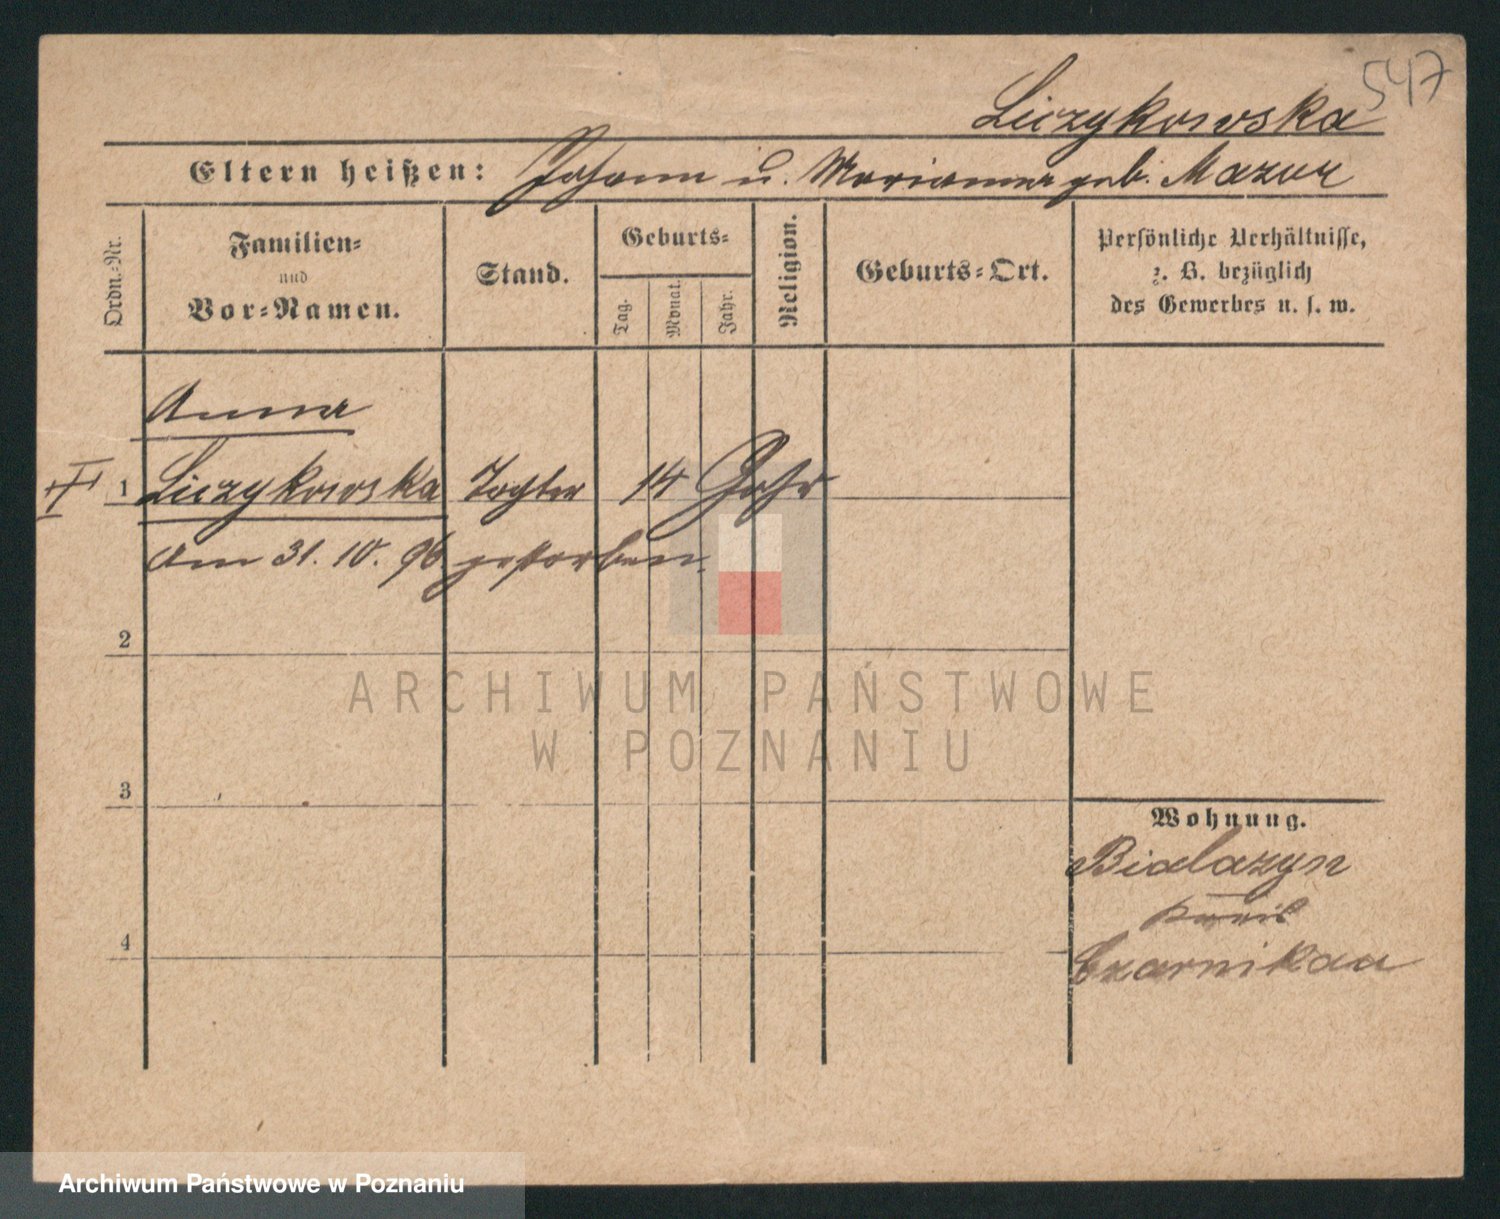 547
Liczykowska
Eltern heißen: Johann u. Marianna geb. Mazur
Ordn.=Nr.
Familien=
und
Vor=Namen.
Stand.
Geburts=
Tag.
Monat.
Jahr.
Religion.
Geburts=Ort.
Persönliche Verhältnisse,
z. B. bezüglich
des Gewerbes u. s. w.
Anna
1 Liczykowska Tochter 14 Jahr
Am 31. 10. 96 gestorben.
2
ARCHIWUM PAŃSTWOWE
W POZNANIU
3
Wohnung.
Bialazyn
Kreis
4
Czarnikau
Archiwum Państwowe w Poznaniu